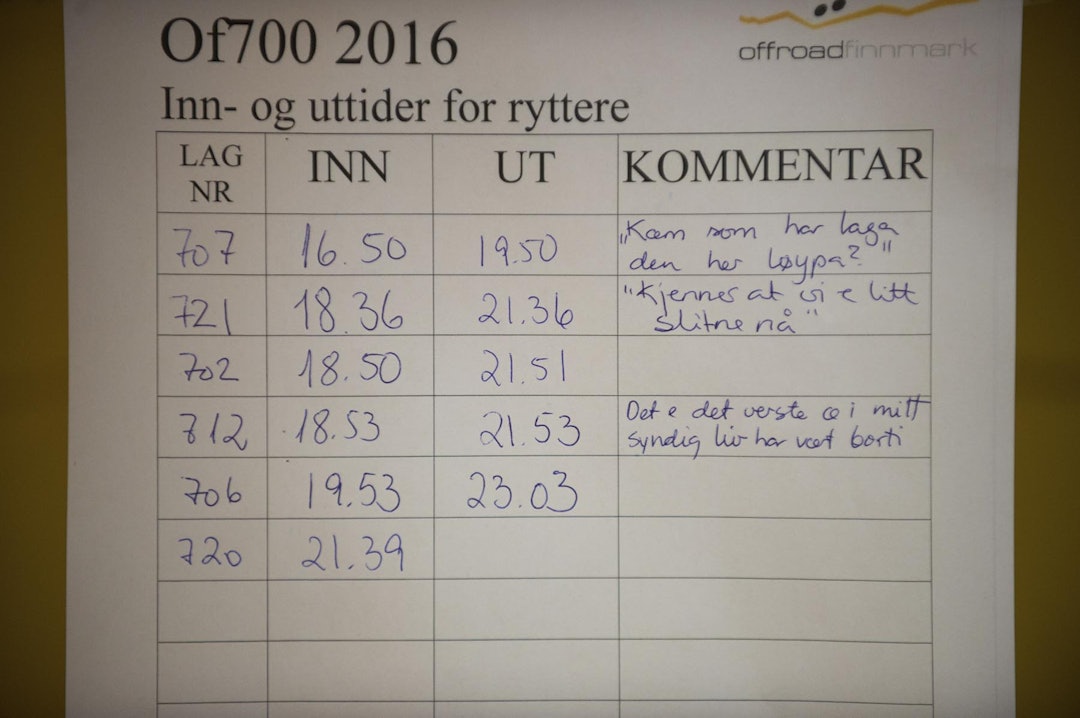 offroadfinnmark
Of700 2016
Inn- og uttider for ryttere
LAG NR INN UT KOMMENTAR
707 16.50 19.50 "Kæm som har laga
den her løypa?"
721 18.36 21.36 "Kjennes at vi e litt
slitne nå"
702 18.50 21.51
712 18.53 21.53 Det e det verste æ i mitt
syndig liv har vært borti
706 19.53 23.03
720 21.39